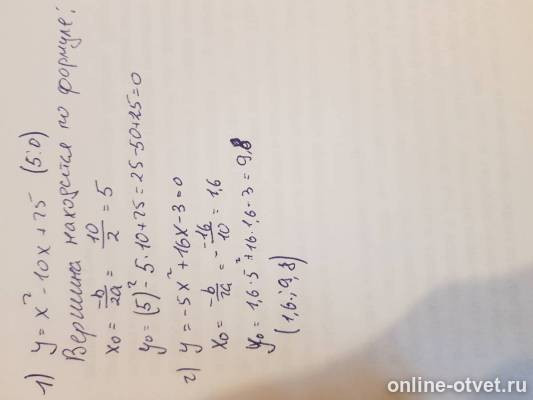 1) y = x² - 10x + 25 (5;0)
Вершина находится по формуле:
x₀ = -b/2a = 10/2 = 5
y₀ = (5)² - 5·10 + 25 = 25 - 50 + 25 = 0
2) y = -5x² + 16x - 3 = 0
x₀ = -b/2a = - -16/10 = 1,6
y₀ = 1,6·5² + 16·1,6 - 3 = 9,8
(1,6; 9,8)
online-otvet.ru